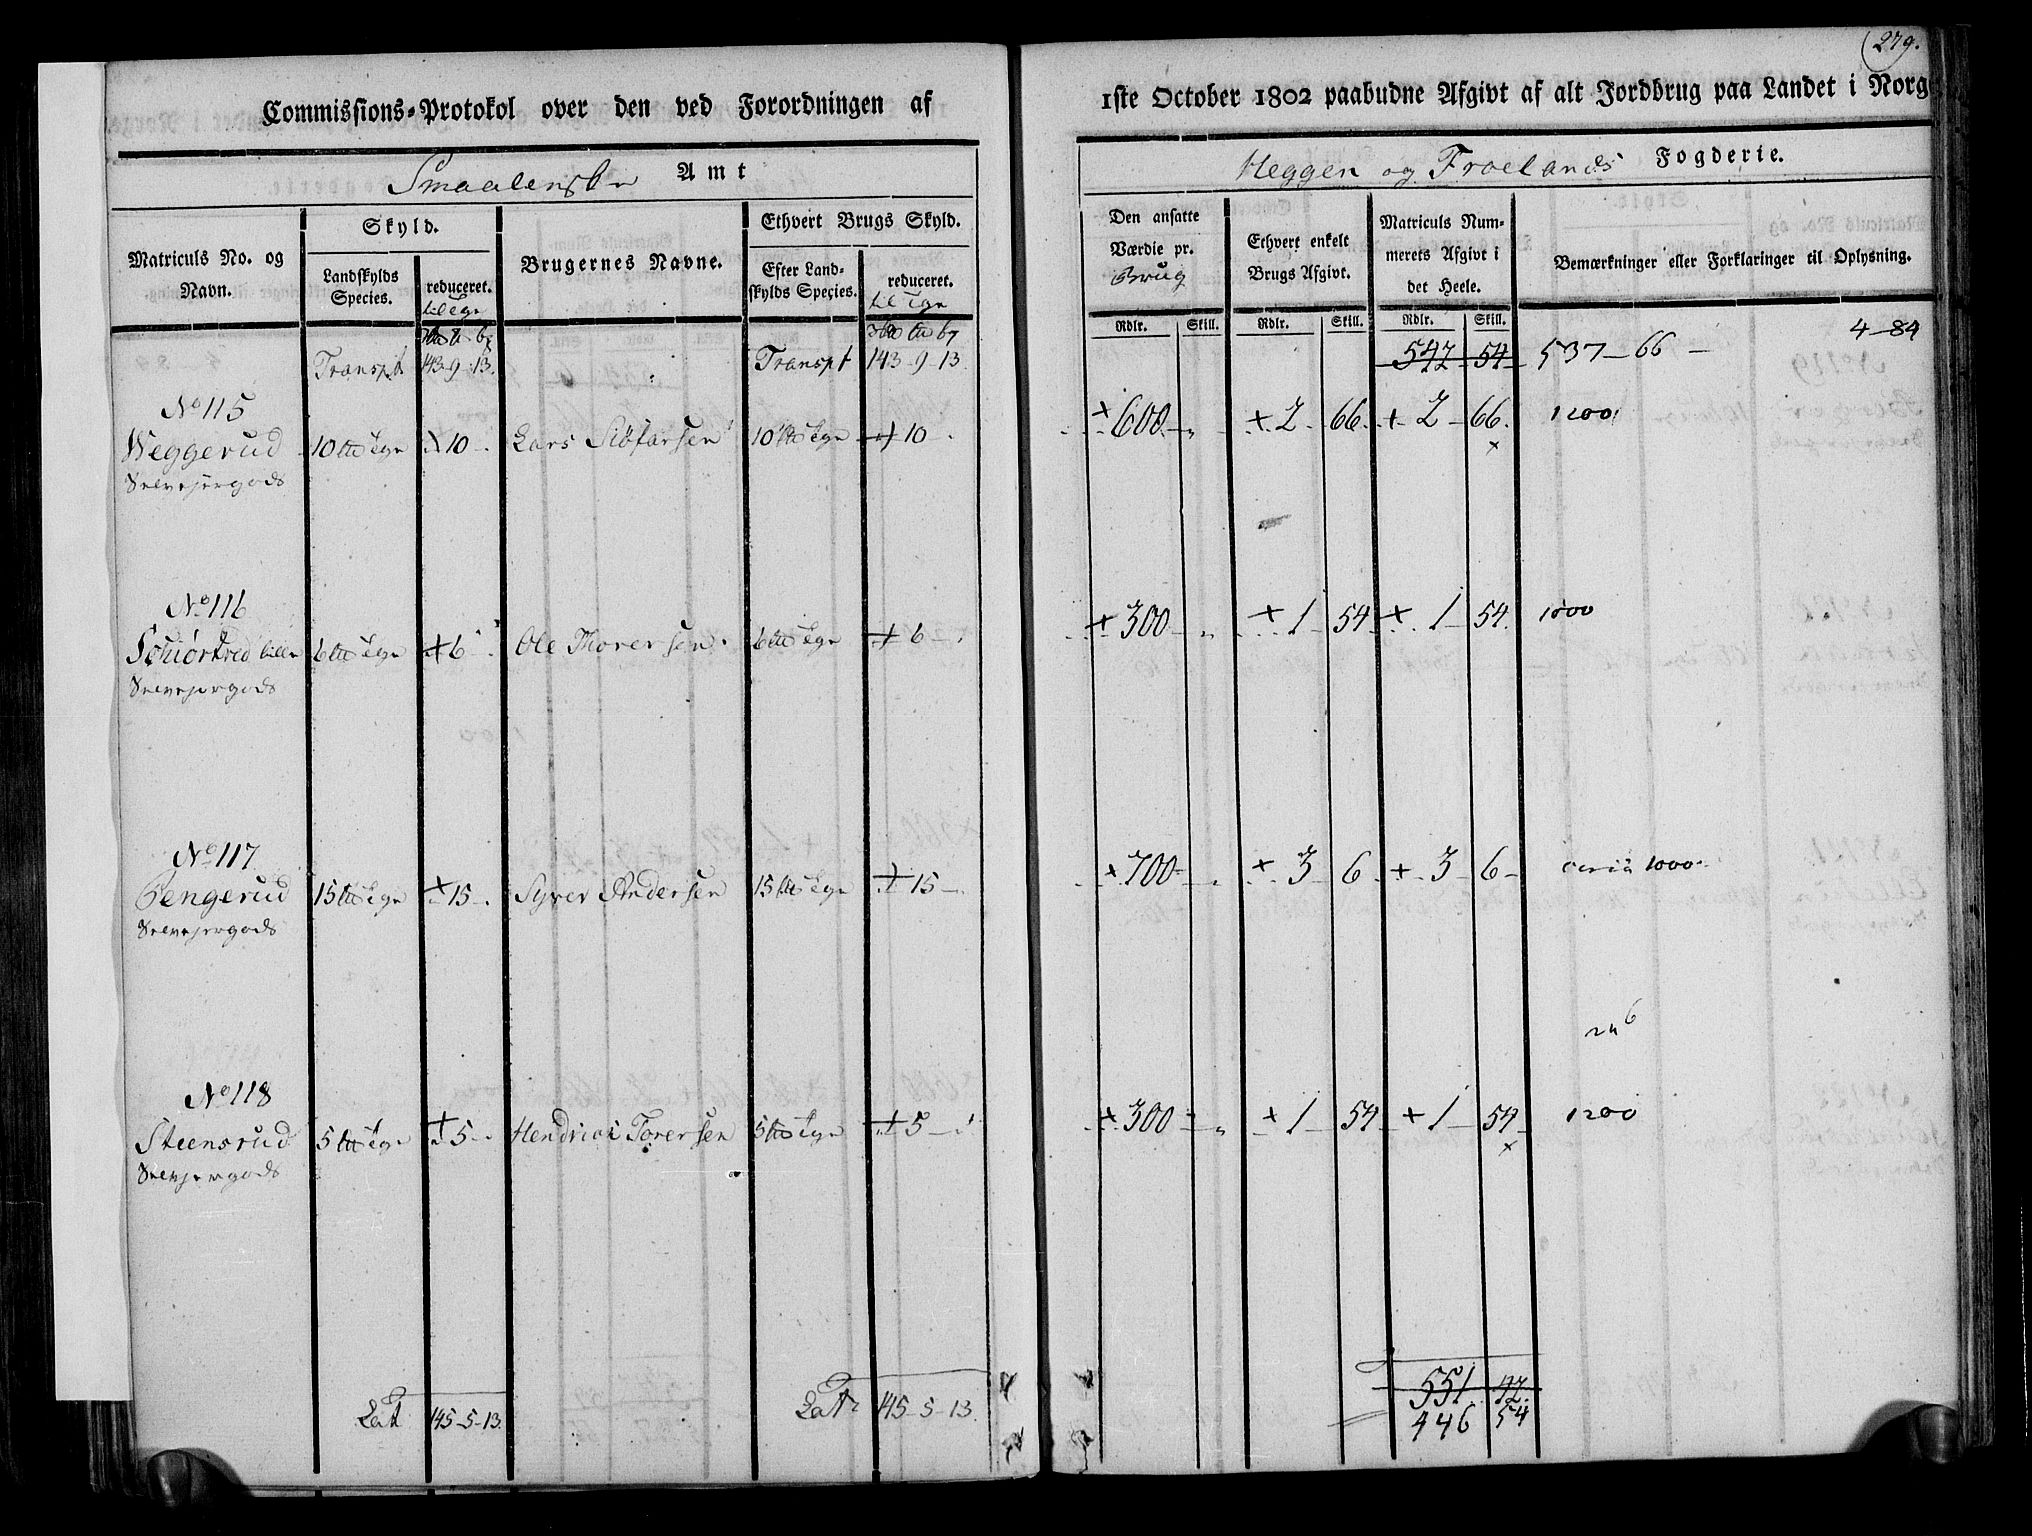 (279.
Commissions-Protokol over den ved Forordningen af
1ste October 1802 paabudne Afgivt af alt Jordbrug paa Landet i Norg
Smaalenske Amt
Heggen og Froelands Fogderie.
Matriculs No. og Navn.
Skyld.
Landskylds Species.
reduceret.
til Tgn
Brugernes Navne.
Ethvert Brugs Skyld.
Efter Landskylds Species.
reduceret.
til Tgn
Den ansatte Værdie pr.
Brug
Ethvert enkelt Brugs Afgivt.
Matriculs Nummerets Afgivt i det Heele.
Bemærkninger eller Forklaringer til Oplysning.
Rdlr. Skill. Rdlr. Skill. Rdlr. Skill.
Transpt 143-9-13. Transpt 143-9-13. 547 54 537-66- 4-84
No 115
Weggerud 10 Tgn 10 Lars 10 Tgn 10 600 2 66. 2 66. 1200
Selvejergods
No 116
lille 6 Tgn 6 Ole Thorersen 6 Tgn 6 300 1 54 1 54. 1000
Selvejergods
No 117
Bengerud 15 Tgn 15 Syver Andersen 15 Tgn 15 700 3 6 3 6 1000
Selvejergods
No 118
Steensrud 5 Tgn 5 Hendrich Torersen 5 Tgn 5 300 1 54 1 54 1200
Selvejergods
551 42.
Lat 145-5-13. Lat 145-5-13. 446 54